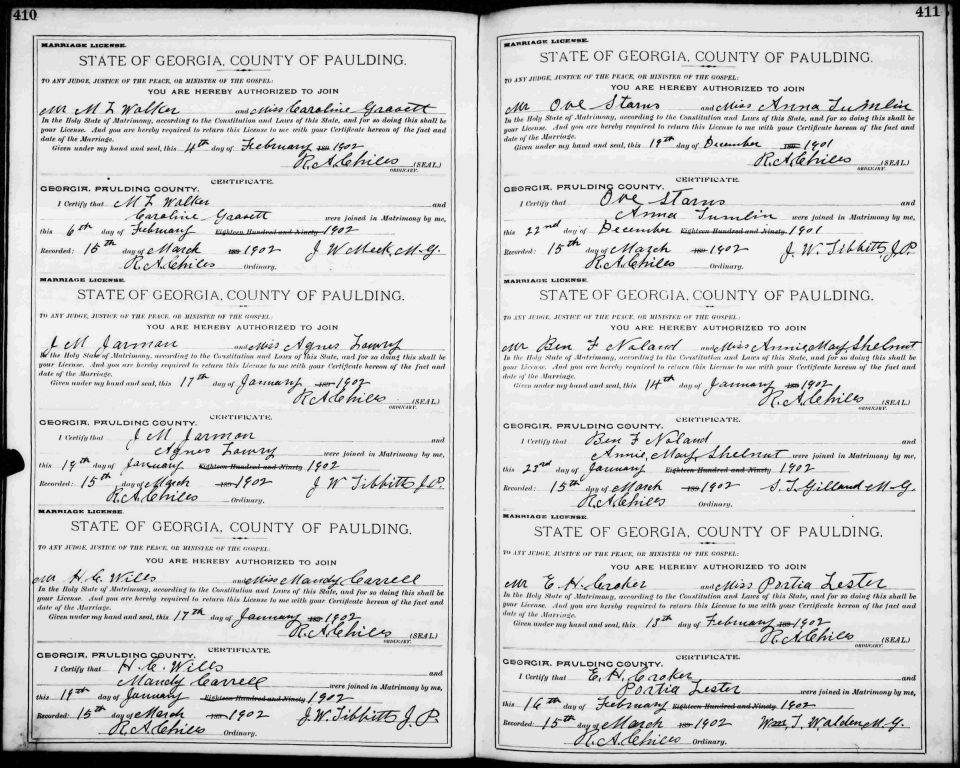 410
MARRIAGE LICENSE.
STATE OF GEORGIA, COUNTY OF PAULDING.
TO ANY JUDGE, JUSTICE OF THE PEACE, OR MINISTER OF THE GOSPEL:
YOU ARE HEREBY AUTHORIZED TO JOIN
Mr M L Walker and Miss Caroline Gravett
In the Holy State of Matrimony, according to the Constitution and Laws of this State, and for so doing this shall be
your License. And you are hereby required to return this License to me with your Certificate hereon of the fact and
date of the Marriage.
Given under my hand and seal, this 4th day of February 189 1902
R. A. Chiles (SEAL)
ORDINARY.
CERTIFICATE.
GEORGIA, PAULDING COUNTY.
I Certify that M L Walker and
Caroline Gravett were joined in Matrimony by me,
this 6th day of February Eighteen Hundred and Ninety 1902
Recorded: 15th day of March 189 1902 J W Meek M.G.
R. A. Chiles Ordinary.
MARRIAGE LICENSE.
STATE OF GEORGIA, COUNTY OF PAULDING.
TO ANY JUDGE, JUSTICE OF THE PEACE, OR MINISTER OF THE GOSPEL:
YOU ARE HEREBY AUTHORIZED TO JOIN
J M Jarman and Miss Agnes Lowry
In the Holy State of Matrimony, according to the Constitution and Laws of this State, and for so doing this shall be
your License. And you are hereby required to return this License to me with your Certificate hereon of the fact and
date of the Marriage.
Given under my hand and seal, this 17th day of January 189 1902
R. A. Chiles (SEAL)
ORDINARY.
CERTIFICATE.
GEORGIA, PAULDING COUNTY.
I Certify that J M Jarman and
Agnes Lowry were joined in Matrimony by me,
this 19th day of January Eighteen Hundred and Ninety 1902
Recorded: 15th day of March 189 1902 J W Tibbitts J.P.
R. A. Chiles Ordinary.
MARRIAGE LICENSE.
STATE OF GEORGIA, COUNTY OF PAULDING.
TO ANY JUDGE, JUSTICE OF THE PEACE, OR MINISTER OF THE GOSPEL:
YOU ARE HEREBY AUTHORIZED TO JOIN
Mr H. C. Wills and Miss Mandy Carrell
In the Holy State of Matrimony, according to the Constitution and Laws of this State, and for so doing this shall be
your License. And you are hereby required to return this License to me with your Certificate hereon of the fact and
date of the Marriage.
Given under my hand and seal, this 17th day of January 189 1902
R. A. Chiles (SEAL)
ORDINARY.
CERTIFICATE.
GEORGIA, PAULDING COUNTY.
I Certify that H. C. Wills and
Mandy Carrell were joined in Matrimony by me,
this 19th day of January Eighteen Hundred and Ninety 1902
Recorded: 15th day of March 189 1902 J. W. Tibbitts J. P.
R. A. Chiles Ordinary.
411
MARRIAGE LICENSE.
STATE OF GEORGIA, COUNTY OF PAULDING.
TO ANY JUDGE, JUSTICE OF THE PEACE, OR MINISTER OF THE GOSPEL:
YOU ARE HEREBY AUTHORIZED TO JOIN
Mr Ove Starns and Miss Anna Tumlin
In the Holy State of Matrimony, according to the Constitution and Laws of this State, and for so doing this shall be
your License. And you are hereby required to return this License to me with your Certificate hereon of the fact and
date of the Marriage.
Given under my hand and seal, this 19th day of December 189 1901
R. A. Chiles (SEAL)
ORDINARY.
CERTIFICATE.
GEORGIA, PAULDING COUNTY.
I Certify that Ove Starns and
Anna Tumlin were joined in Matrimony by me,
this 22nd day of December Eighteen Hundred and Ninety 1901
Recorded: 15th day of March 189 1902 J. W. Tibbitts, J.P.
R. A. Chiles Ordinary.
MARRIAGE LICENSE.
STATE OF GEORGIA, COUNTY OF PAULDING.
TO ANY JUDGE, JUSTICE OF THE PEACE, OR MINISTER OF THE GOSPEL:
YOU ARE HEREBY AUTHORIZED TO JOIN
Mr Ben F Noland and Miss Annie May Shelnut
In the Holy State of Matrimony, according to the Constitution and Laws of this State, and for so doing this shall be
your License. And you are hereby required to return this License to me with your Certificate hereon of the fact and
date of the Marriage.
Given under my hand and seal, this 14th day of January 189 1902
R. A. Chiles (SEAL)
ORDINARY.
CERTIFICATE.
GEORGIA, PAULDING COUNTY.
I Certify that Ben F Noland and
Annie May Shelnut were joined in Matrimony by me,
this 23rd day of January Eighteen Hundred and Ninety 1902
Recorded: 15th day of March 189 1902 S. T. Gilland M.G.
R. A. Chiles Ordinary.
MARRIAGE LICENSE.
STATE OF GEORGIA, COUNTY OF PAULDING.
TO ANY JUDGE, JUSTICE OF THE PEACE, OR MINISTER OF THE GOSPEL:
YOU ARE HEREBY AUTHORIZED TO JOIN
Mr E. H. Croker and Miss Portia Lester
In the Holy State of Matrimony, according to the Constitution and Laws of this State, and for so doing this shall be
your License. And you are hereby required to return this License to me with your Certificate hereon of the fact and
date of the Marriage.
Given under my hand and seal, this 13th day of February 189 1902
R. A. Chiles (SEAL)
ORDINARY.
CERTIFICATE.
GEORGIA, PAULDING COUNTY.
I Certify that E. H. Croker and
Portia Lester were joined in Matrimony by me,
this 16th day of February Eighteen Hundred and Ninety 1902
Recorded: 15th day of March 189 1902 Wm. T. Walden M.G.
R. A. Chiles Ordinary.